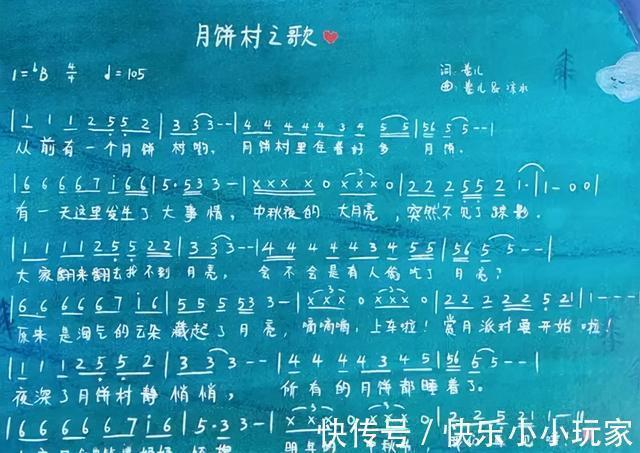 月饼村之歌
1=♭B 4/4 ♩=105
词:
曲: &
| 1 1 1 2 5 5 2 | 3 3 3 - - | 4 4 4 4 4 3 4 5 5 | 56 5 5 - - |
从前有一个月饼村哟, 月饼村里住着好多月饼.
| 6 6 6 6 6 7 i 6 6 | 5 · 5 3 3 - | x x x x 0 x x x 0 | 2 2 2 5 5 2 1 · | 1 - 0 0 |
有一天这里发生了大事情, 中秋夜的大月亮, 突然不见了踪影.
| 1 1 1 1 2 5 5 2 2 | 3 3 3 - - | 4 4 4 4 4 3 4 5 5 | 56 5 5 - - |
大家翻来翻去找不到月亮, 会不会是有人偷吃了月亮?
| 6 6 6 6 6 7 i 6 | 5 5 5 5 3 3 - | x x x x 0 x x x 0 | 2 2 2 2 2 5 2 1 | 1 - - - |
原来是淘气的云朵藏起了月亮, 嘀嘀嘀, 上车啦! 赏月派对要开始啦!
| 1 1 1 2 5 5 2 | 3 3 3 - - | 4 4 4 4 3 4 5 | 56 5 5 - - |
夜深了月饼村静悄悄, 所有的月饼都睡着了.
| 6 6 6 6 6 7 i 6 | 5 · 3 3 - |
明年的中秋节,
快传号/快乐小小玩家